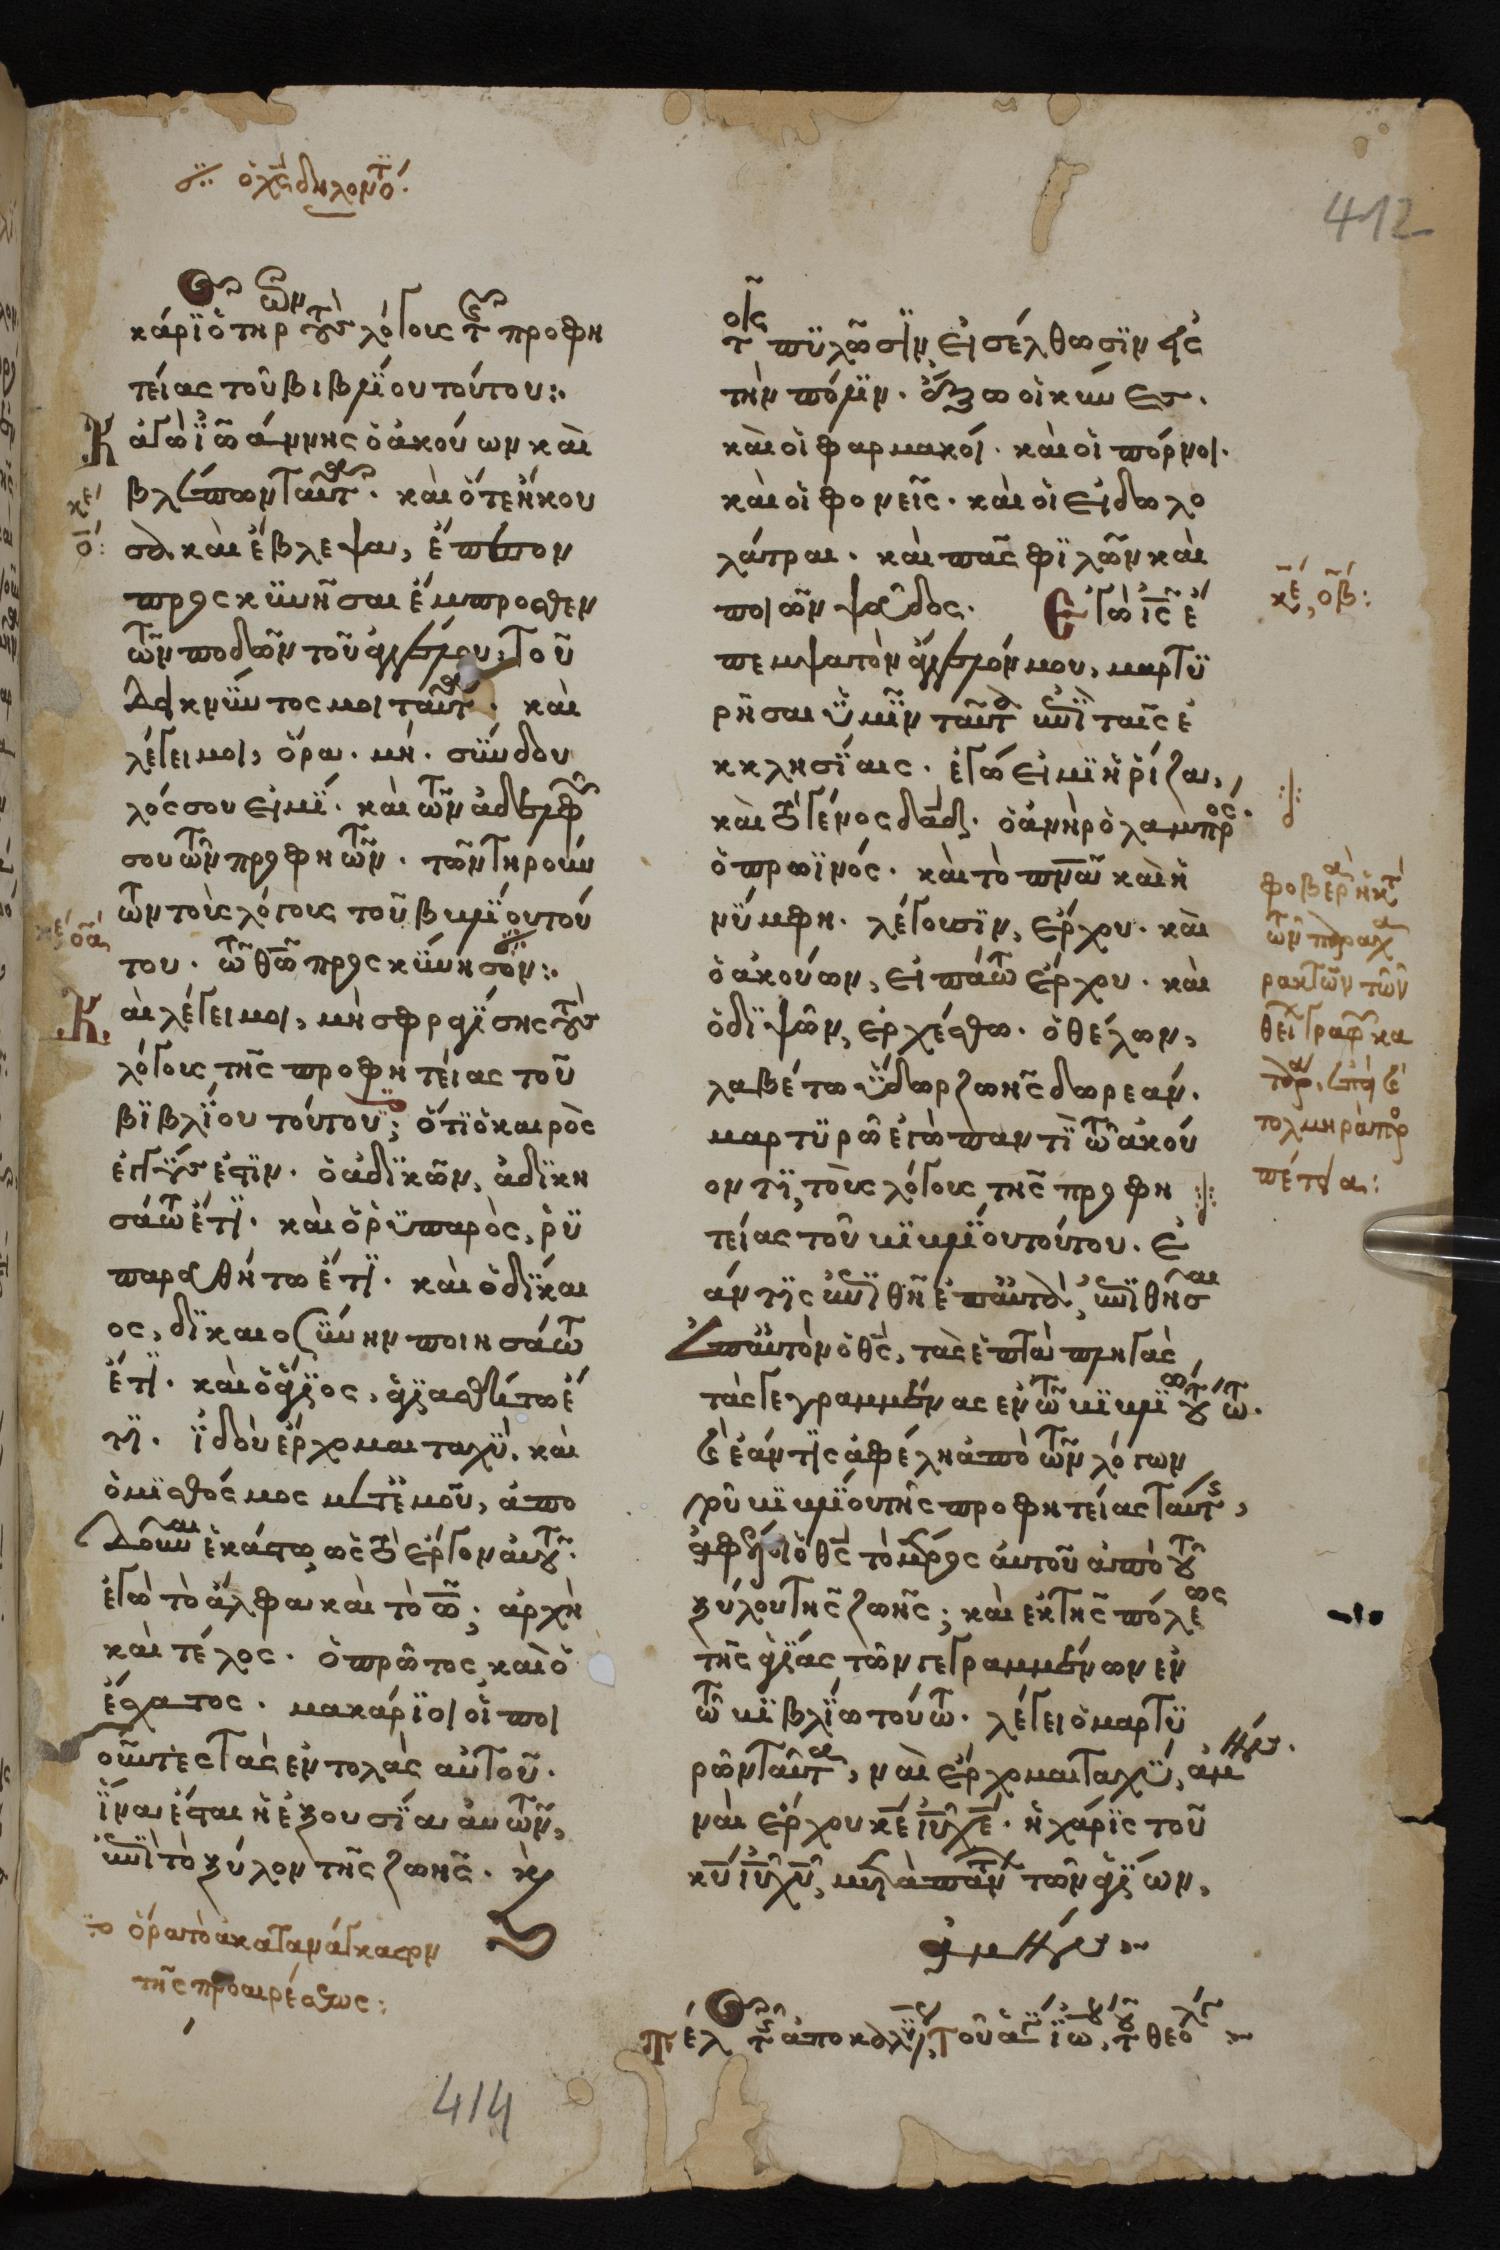 412
κάριος ὁ τηρῶν τοὺς λόγους τῆς προφη
τείας τοῦ βιβλίου τούτου:
Κἀγὼ ἰωάννης ὁ ἀκούων καὶ
βλέπων ταῦτα. καὶ ὅτε ἤκου
σα καὶ ἔβλεψα, ἔπεσον
προσκυνῆσαι ἔμπροσθεν
τῶν ποδῶν τοῦ ἀγγέλου, τοῦ
δεικνύντος μοι ταῦτα. καὶ
λέγει μοι, ὅρα. μή. σύνδου
λός σου εἰμί. καὶ τῶν ἀδελφῶν
σου τῶν προφητῶν. τῶν τηρούν
των τοὺς λόγους τοῦ βιβλίου τού
του. τῷ θῶ προσκύνησον:
Καὶ λέγει μοι, μὴ σφραγίσης τοὺς
λόγους τῆς προφητείας τοῦ
βιβλίου τούτου; ὅτι ὁ καιρὸς
ἐγγύς ἐστιν. ὁ ἀδικῶν, ἀδικη
σάτω ἔτι. καὶ ὁ ῥυπαρὸς, ῥυ
παρευθήτω ἔτι. καὶ ὁ δίκαι
ος, δικαιοσύνην ποιησάτω
ἔτι. καὶ ὁ ἅγιος, ἁγιασθήτω ἔ
τι. ἰδοὺ ἔρχομαι ταχύ. καὶ
ὁ μισθός μου μετ' ἐμοῦ, ἀπο
δοῦναι ἑκάστω ὡς τὸ ἔργον αὐτοῦ.
ἐγὼ τὸ ἄλφα καὶ τὸ ω; ἀρχὴ
καὶ τέλος. ὁ πρῶτος καὶ ὁ
ἔσχατος. μακάριοι οἱ ποι
οῦντες τὰς ἐντολὰς αὐτοῦ.
ἵνα ἔσται ἡ ἐξουσία αὐτῶν,
ἐπὶ τὸ ξύλον τῆς ζωῆς. κ
ὅρα τὸ ἀκαταναγκαστον
τῆς προαιρέσεως:
414
τοῖς πυλῶσιν εἰσέλθωσιν εἰς
τὴν πόλιν. ἔξω οἱ κύνες.
καὶ οἱ φαρμακοί. καὶ οἱ πόρνοι.
καὶ οἱ φονεῖς. καὶ οἱ εἰδωλο
λάτραι. καὶ πᾶς φιλῶν καὶ
ποιῶν ψεῦδος. Ἐγὼ ις ἔ
πεμψα τὸν ἄγγελόν μου, μαρτυ
ρῆσαι ὑμῖν ταῦτα ἐπὶ ταῖς ἐ
κκλησίαις. ἐγώ εἰμι ἡ ῥίζα,
καὶ τὸ γένος δαδ. ὁ ἀνὴρ ὁ λαμπρός.
ὁ πρωϊνός. καὶ τὸ πνα καὶ ἡ
νύμφη. λέγουσιν, ἔρχου. καὶ
ὁ ἀκούων, εἰπάτω ἔρχου. καὶ
ὁ διψῶν, ἐρχέσθω. ὁ θέλων,
λαβέτω ὕδωρ ζωῆς δωρεάν.
μαρτυρῶ ἐγὼ παντὶ τῶ ἀκού
οντι, τοὺς λόγους τῆς προφη
τείας τοῦ βιβλίου τούτου. ἐ
άν τις ἐπιθῆ ἐπ' αὐτὰ, ἐπιθήσαι
ἐπ' αὐτὸν ὁ θς, τὰς ἑπτὰ πληγὰς
τὰς γεγραμμένας ἐν τῶ βιβλίω τούτω.
καὶ ἐάν τις ἀφέλη ἀπὸ τῶν λόγων
τοῦ βιβλίου τῆς προφητείας ταύτης,
ἀφέλοι ὁ θς τὸ μέρος αὐτοῦ ἀπὸ τοῦ
ξύλου τῆς ζωῆς; καὶ ἐκ τῆς πόλεως
τῆς ἁγίας τῶν γεγραμμένων ἐν
τῶ βιβλίω τούτω. λέγει ὁ μαρτυ
ρῶν ταῦτα, ναὶ ἔρχομαι ταχύ, ἀμήν.
ναὶ ἔρχου κε ιυ χε. ἡ χάρις τοῦ
κυ ιυ χυ, μετὰ πάντων τῶν ἁγίων,
ἀμήν
Τέλος τῆς ἀποκαλύψεως τοῦ ἁγίου ἰω, τοῦ θεολόγου
κε οβ: